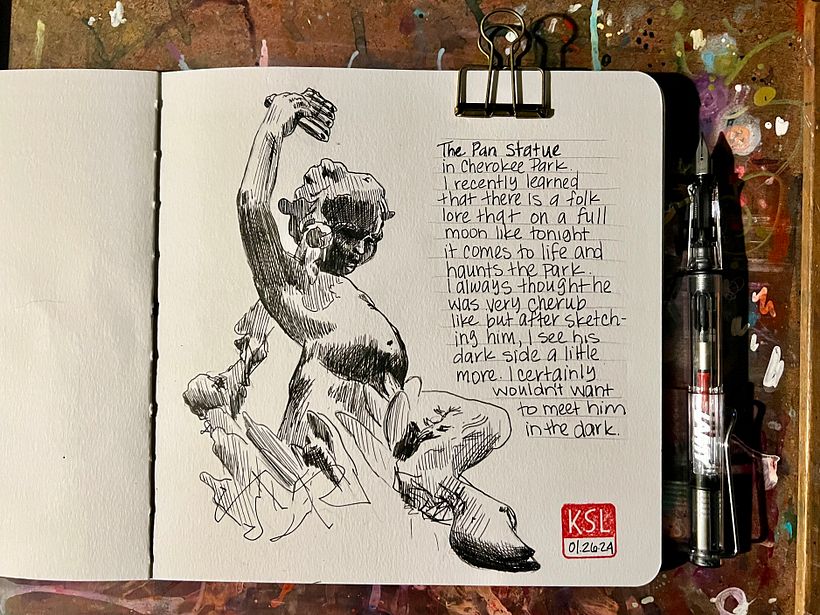 The Pan Statue
in Cherokee Park.
I recently learned
that there is a folk
lore that on a full
moon like tonight
it comes to life and
haunts the park.
I always thought he
was very cherub
like but after sketch-
ing him, I see his
dark side a little
more. I certainly
wouldn't want
to meet him
in the dark.
KSL
01.26.24